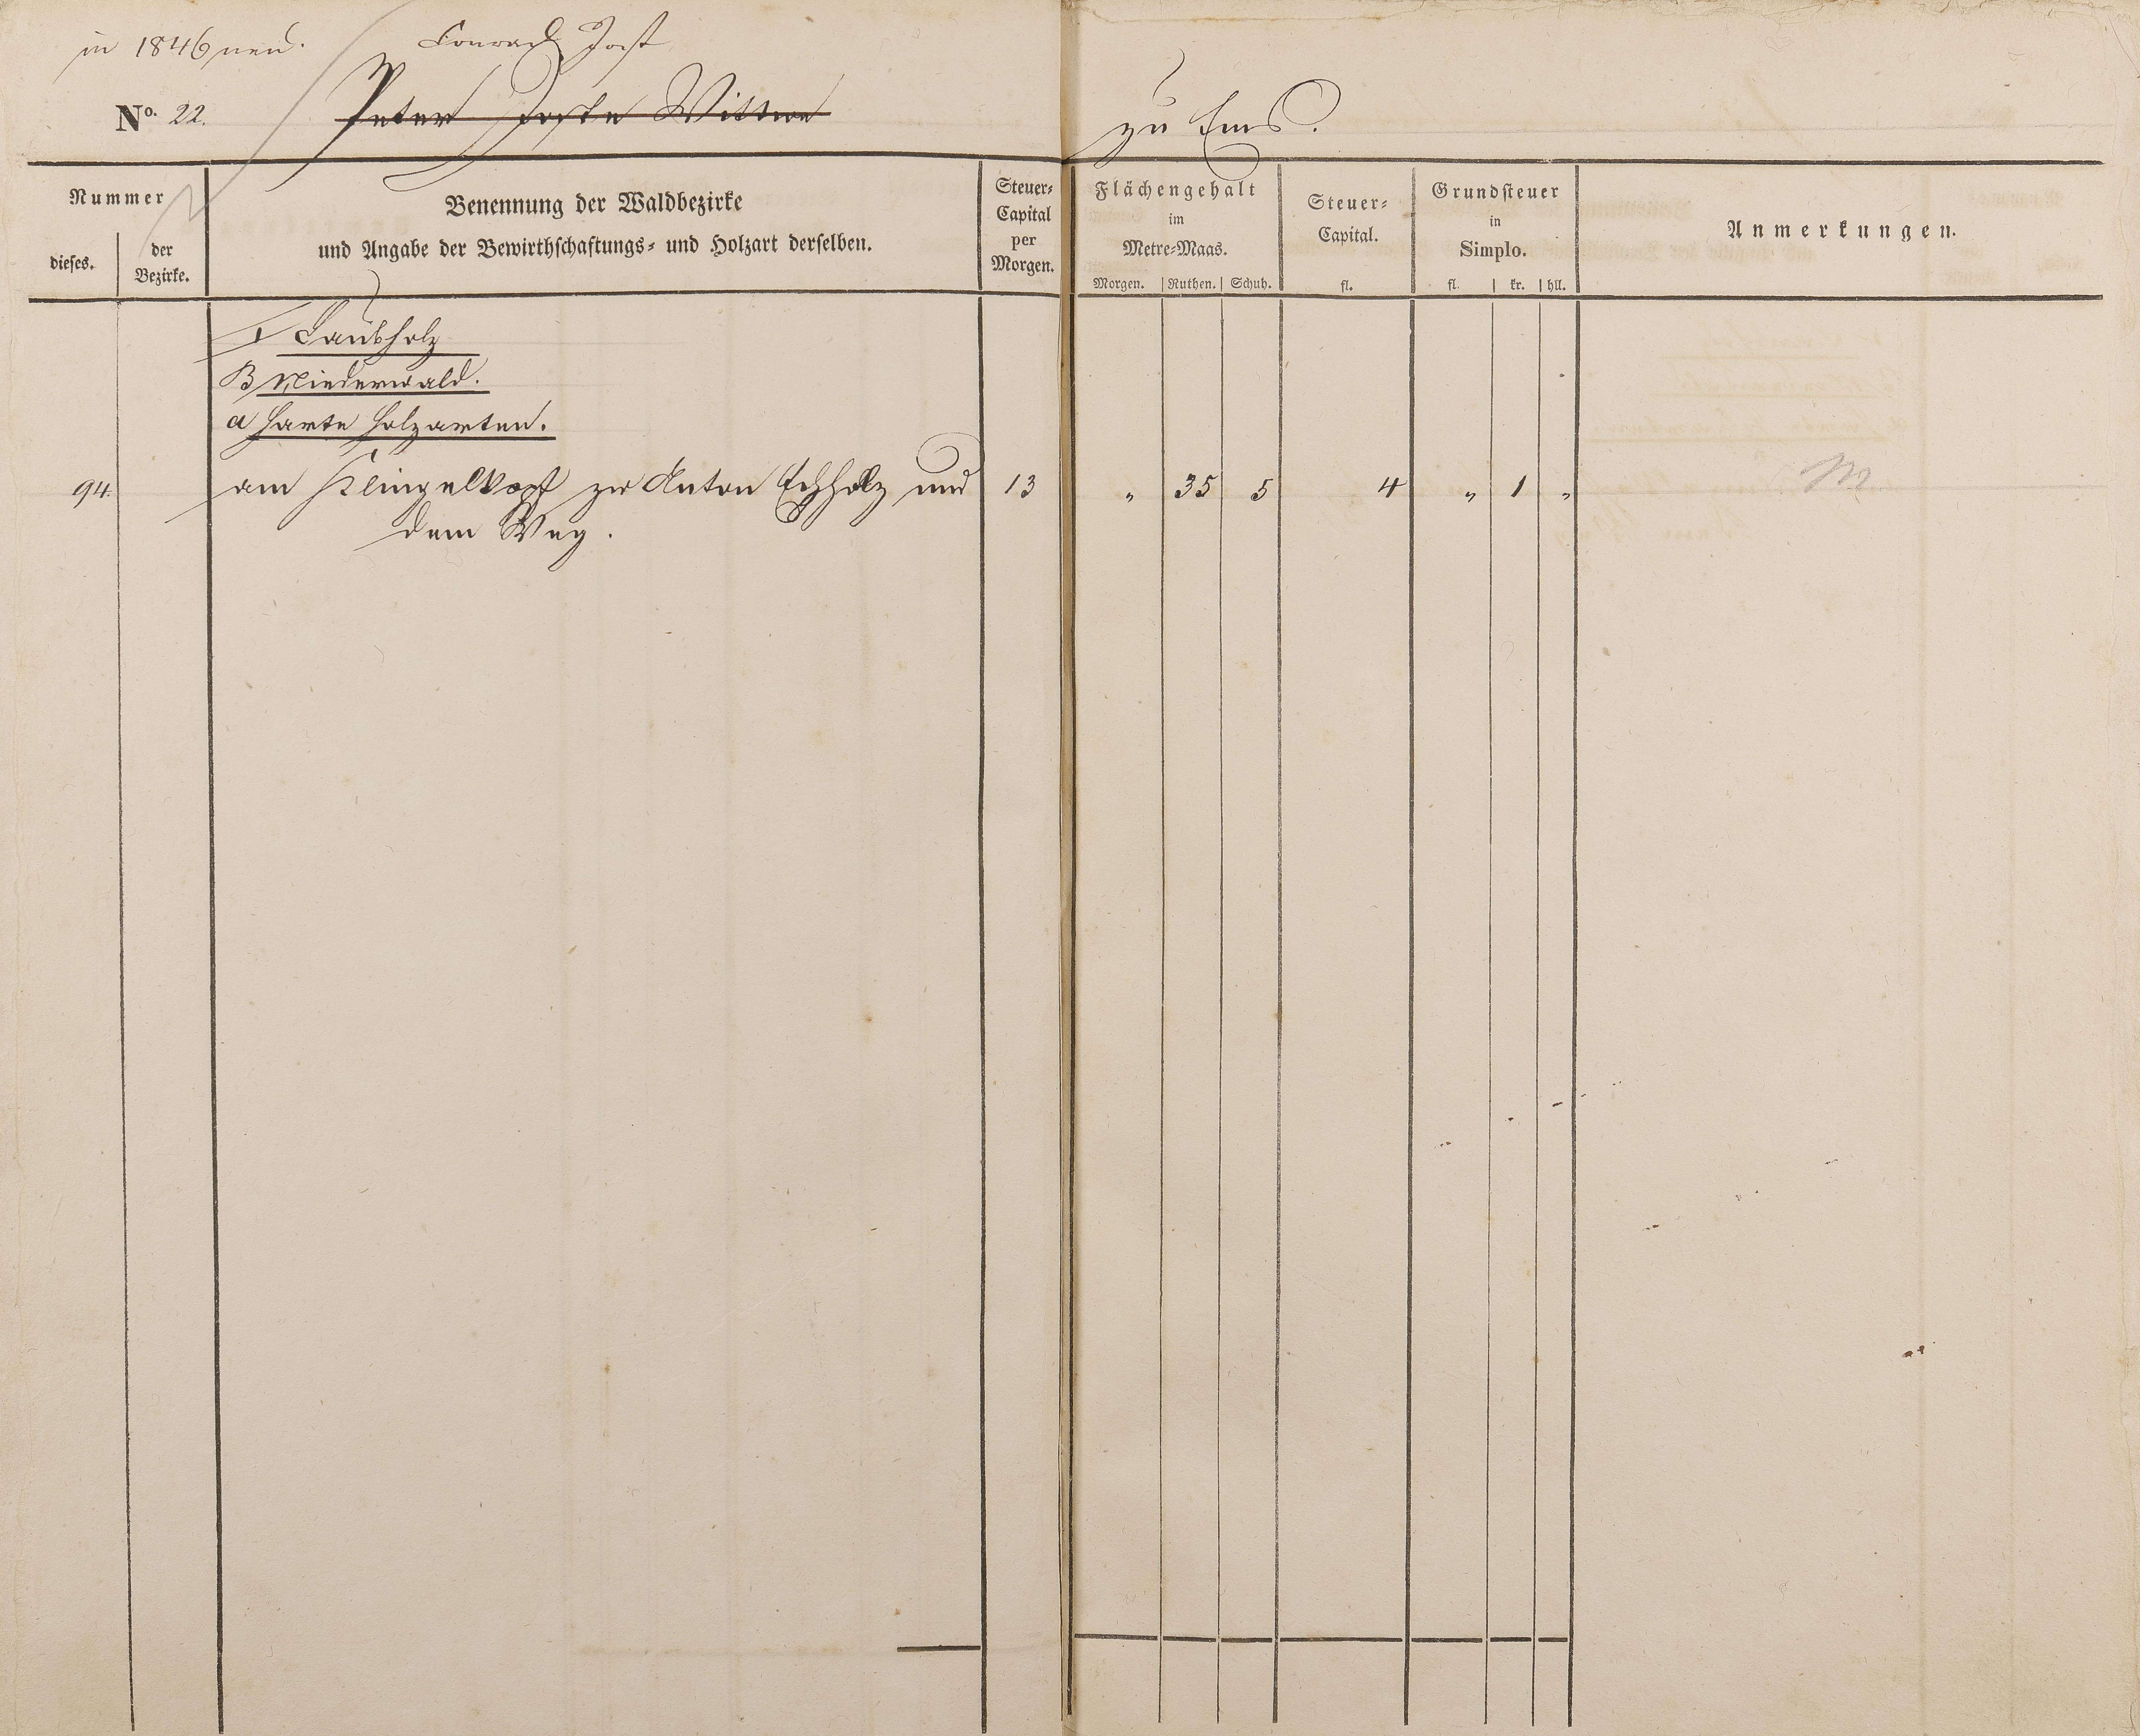 in 1846 neu. Conrad Jost
No. 22. Peter Josts Wittwe zu Ems.
Nummer
dieses.
der
Bezirke.
Benennung der Waldbezirke
und Angabe der Bewirthschaftungs- und Holzart derselben.
Steuer-
Capital
per
Morgen.
Flächengehalt
im
Metre-Maas.
Morgen. Ruthen. Schuh.
Steuer-
Capital.
fl.
Grundsteuer
in
Simplo.
fl. kr. hll.
Anmerkungen.
I Laubholz
B Niederwald.
a Harte Holzarten.
94. am Klingelkopf zw Anton Echholz und 13 " 35 5 4 " 1 "
dem Weg.